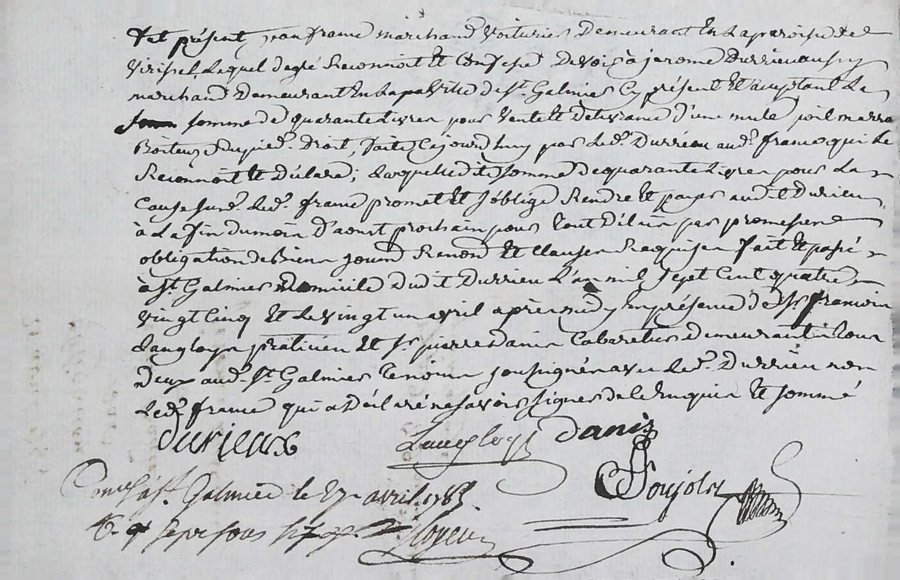 fut présent jean frame marchand voiturier demeurant en la paroisse de
Viricel Lequel de gré Reconnoit et confesse devoir à jerome Durrieu aussy
marchand demeurant en la pa. Ville de St. Galmier Cy présent et acceptant La
somme de quarante Livres pour vente et delivrance d'une mule poil
Boiteuse du pied droit, faite Cejourd'huy par Led. Durrieu aud. frame qui Le
Reconnoit et déclare; Laquelle dite somme de quarante Livres pour La
Cause sus. Led. frame promet et s'oblige Rendre et payer aud. Durrieu
à La fin du mois d'aoust prochain pour tout délai par promesse
obligation de Biens soumis. Renon. et clauses Requises fait et passé
à St. Galmier domicile dudit Durrieu L'an mil sept cent quatre
vingt Cinq et Le vingt un avril après midy En présence de Sr. françois
Langloys praticien et Sr. pierre danis Cabaretier demeurant tous
deux aud. St. Galmier temoins soussignés avec Led. Durrieu non
Led. frame qui a déclaré ne savoir signer de ce Enquis et sommé
durieux Langloys danis
Poujolz
Con.lé à St. Galmier le 27 avril 1785
R. q